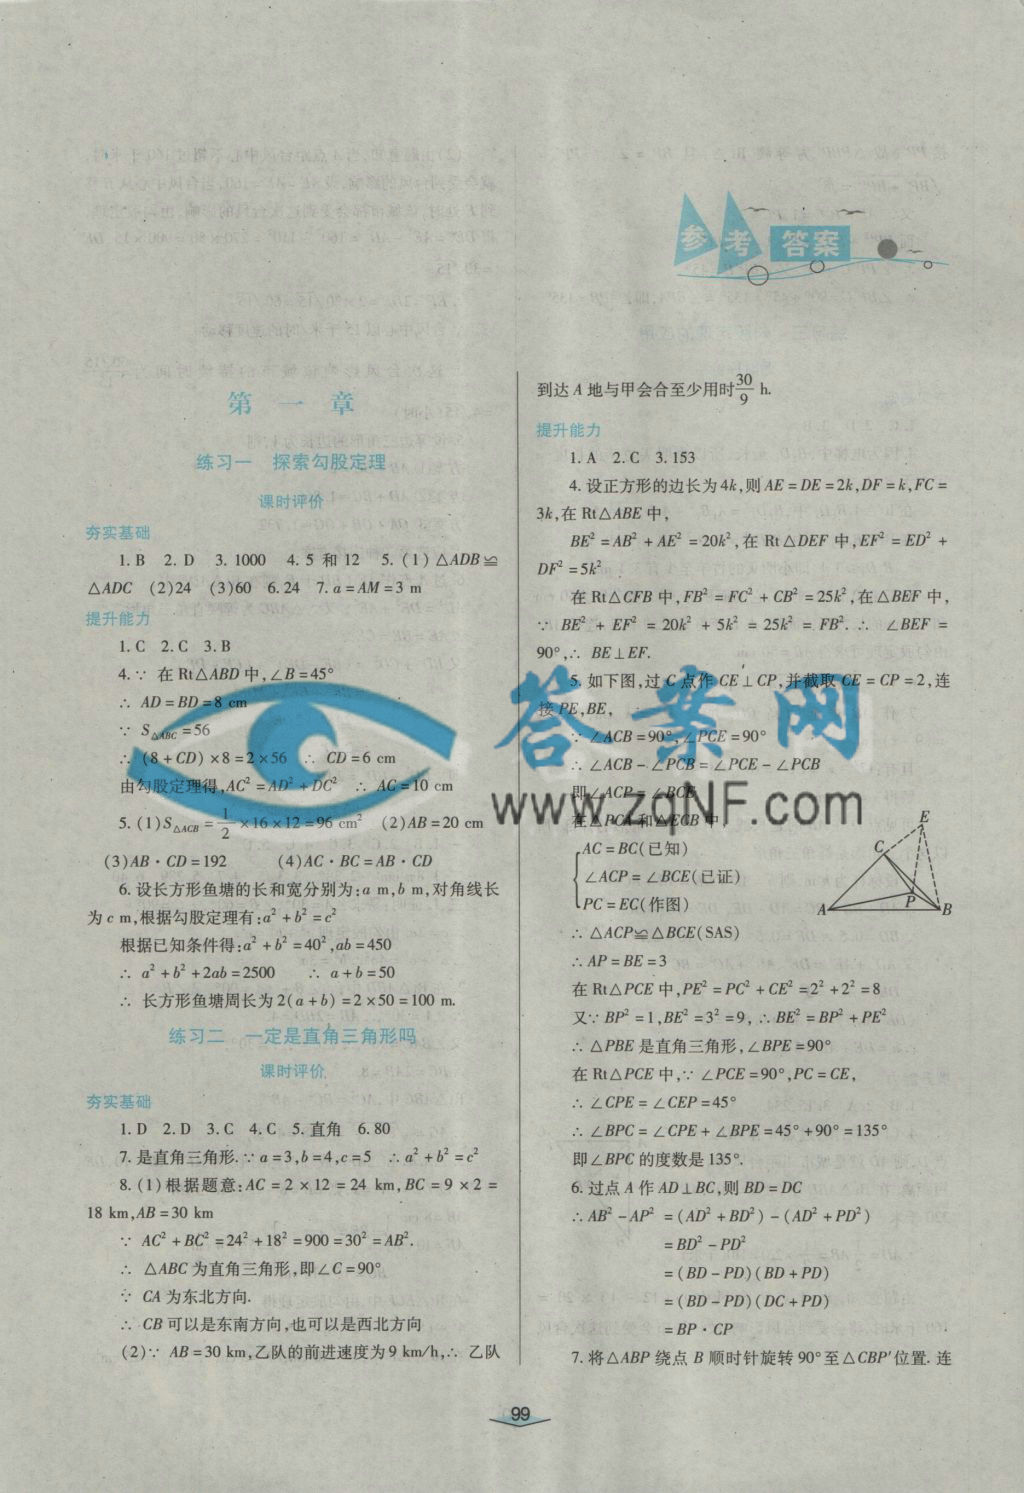 参考答案
第一章
练习一 探索勾股定理
课时评价
夯实基础
1. B 2. D 3. 1000 4. 5 和 12 5. (1) △ADB≌
△ADC (2)24 (3)60 6. 24 7. a = AM = 3 m
提升能力
1. C 2. C 3. B
4. ∵ 在 Rt△ABD 中,∠B = 45°
∴ AD = BD = 8 cm
∵ S△ABC = 56
∴ (8 + CD) × 8 = 2 × 56 ∴ CD = 6 cm
由勾股定理得, AC² = AD² + DC² ∴ AC = 10 cm
5. (1) S△ACB = 1/2 × 16 × 12 = 96 cm² (2) AB = 20 cm
(3) AB · CD = 192 (4) AC · BC = AB · CD
6. 设长方形鱼塘的长和宽分别为:a m, b m, 对角线长
为 c m, 根据勾股定理有: a² + b² = c²
根据已知条件得: a² + b² = 40², ab = 450
∴ a² + b² + 2ab = 2500 ∴ a + b = 50
∴ 长方形鱼塘周长为 2(a + b) = 2 × 50 = 100 m.
练习二 一定是直角三角形吗
课时评价
夯实基础
1. D 2. D 3. C 4. C 5. 直角 6. 80
7. 是直角三角形. ∵ a = 3, b = 4, c = 5 ∴ a² + b² = c²
8. (1) 根据题意: AC = 2 × 12 = 24 km, BC = 9 × 2 =
18 km, AB = 30 km
∵ AC² + BC² = 24² + 18² = 900 = 30² = AB².
∴ △ABC 为直角三角形, 即∠C = 90°.
∵ CA 为东北方向.
∴ CB 可以是东南方向, 也可以是西北方向
(2) ∵ AB = 30 km, 乙队的前进速度为 9 km/h, ∴ 乙队
到达 A 地与甲会合至少用时 30/9 h.
提升能力
1. A 2. C 3. 153
4. 设正方形的边长为 4k, 则 AE = DE = 2k, DF = k, FC =
3k, 在 Rt△ABE 中,
BE² = AB² + AE² = 20k², 在 Rt△DEF 中, EF² = ED² +
DF² = 5k²
在 Rt△CFB 中, FB² = FC² + CB² = 25k², 在△BEF 中,
∵ BE² + EF² = 20k² + 5k² = 25k² = FB². ∴ ∠BEF =
90°, ∴ BE⊥EF.
5. 如下图, 过 C 点作 CE⊥CP, 并截取 CE = CP = 2, 连
接 PE, BE,
∵ ∠ACB = 90°, ∠PCE = 90°
∴ ∠ACB - ∠PCB = ∠PCE - ∠PCB
即∠ACP = ∠BCE
在△PCA 和△ECB 中,
AC = BC(已知)
∠ACP = ∠BCE(已证)
PC = EC(作图)
E
C
P
A
B
∴ △ACP≌△BCE(SAS)
∴ AP = BE = 3
在 Rt△PCE 中, PE² = PC² + CE² = 2² + 2² = 8
又∵ BP² = 1, BE² = 3² = 9, ∴ BE² = BP² + PE²
∴ △PBE 是直角三角形, ∠BPE = 90°
在 Rt△PCE 中, ∵ ∠PCE = 90°, PC = CE,
∴ ∠CPE = ∠CEP = 45°
∴ ∠BPC = ∠CPE + ∠BPE = 45° + 90° = 135°
即∠BPC 的度数是 135°.
6. 过点 A 作 AD⊥BC, 则 BD = DC
∴ AB² - AP² = (AD² + BD²) - (AD² + PD²)
= BD² - PD²
= (BD - PD)(BD + PD)
= (BD - PD)(DC + PD)
= BP · CP
7. 将△ABP 绕点 B 顺时针旋转 90°至△CBP′位置. 连
99
答案网
www.zqNF.com